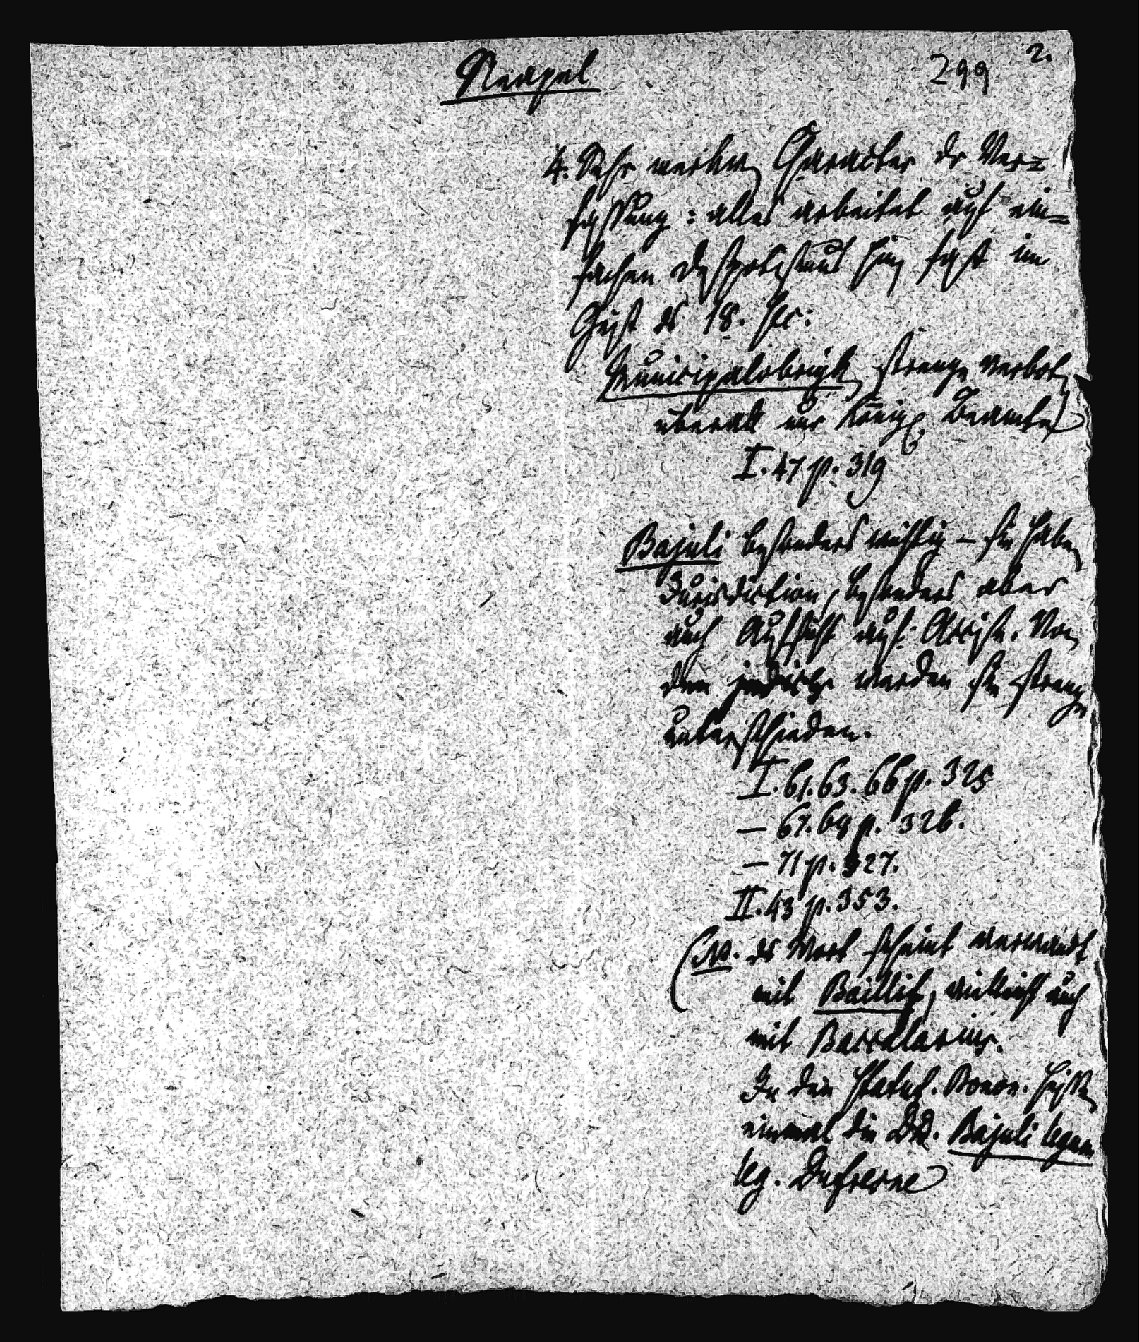 Neapel 299 2.
4. Sehr merkw. Character dr Ver=
fassung: alles arbeitet auf ein=
fachen Despotismus hin, fast im
Geist ds 18. Sec:
Municipalobrigk. streng verbot.
überall nur königl. Beamte
I. 47 p. 319
Bajuli besonders wichtig – sie haben
Jurisdiction, besonders aber
auch Aufsicht auf Accise. Von
den judices werden sie streng
unterschieden.
I. 61. 63. 66 p. 325
— 67. 69 p. 326.
— 71 p. 327.
II. 43 p. 353.
(NB. ds Wort scheint verwandt
mit Baillif, vielleicht auch
mit Baccalarius.
In den Statut. Bonon. heißen
einmal die DD. Bajuli legum
leg. Dufresne